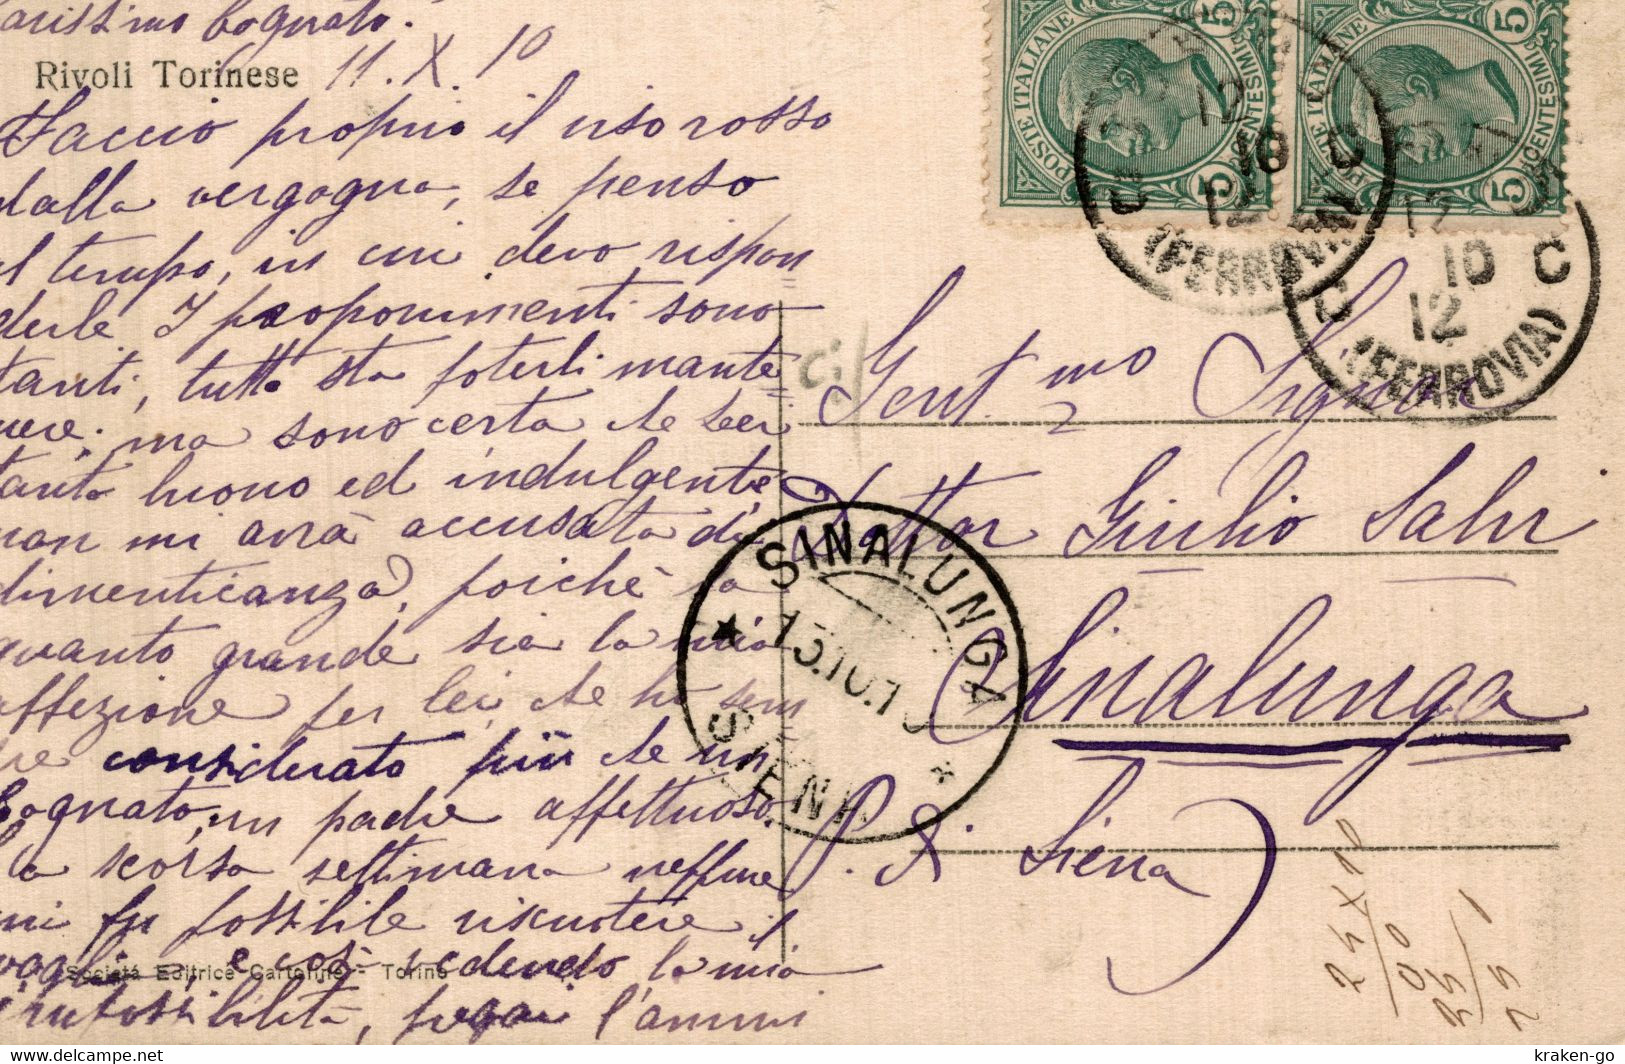 Carissimo Cognato.
Rivoli Torinese 11. X. 10
Faccio proprio il viso rosso
dalla vergogna, se penso
al tempo, in cui devo rispon=
derle. I proponimenti sono
tanti, tutto sta poterli mante=
nere; ma sono certa che Lei
tanto buono ed indulgente
non mi avrà accusata di
dimenticanza, poichè sa
quanto grande sia la mia
affezione per lei, che ho sem=
pre considerato più che un
Cognato, un padre affettuoso.
La scorsa settimana neppure
mi fu possibile riscuotere il
vaglia, e così vedendo la mia
impossibilità, pregai l'ammi
Società Editrice Cartoline - Torino
POSTE ITALIANE
5 CENTESIMI 5
POSTE ITALIANE
5 CENTESIMI 5
12
10
12
(FERROVIA)
C
12
10 C
12
(FERROVIA)
Ci
Gent.mo Signor
Dottor Giulio Salvi
Sinalunga
P. di Siena
SINALUNGA
13.10.10
SIENA
25 X 10
kraken-go